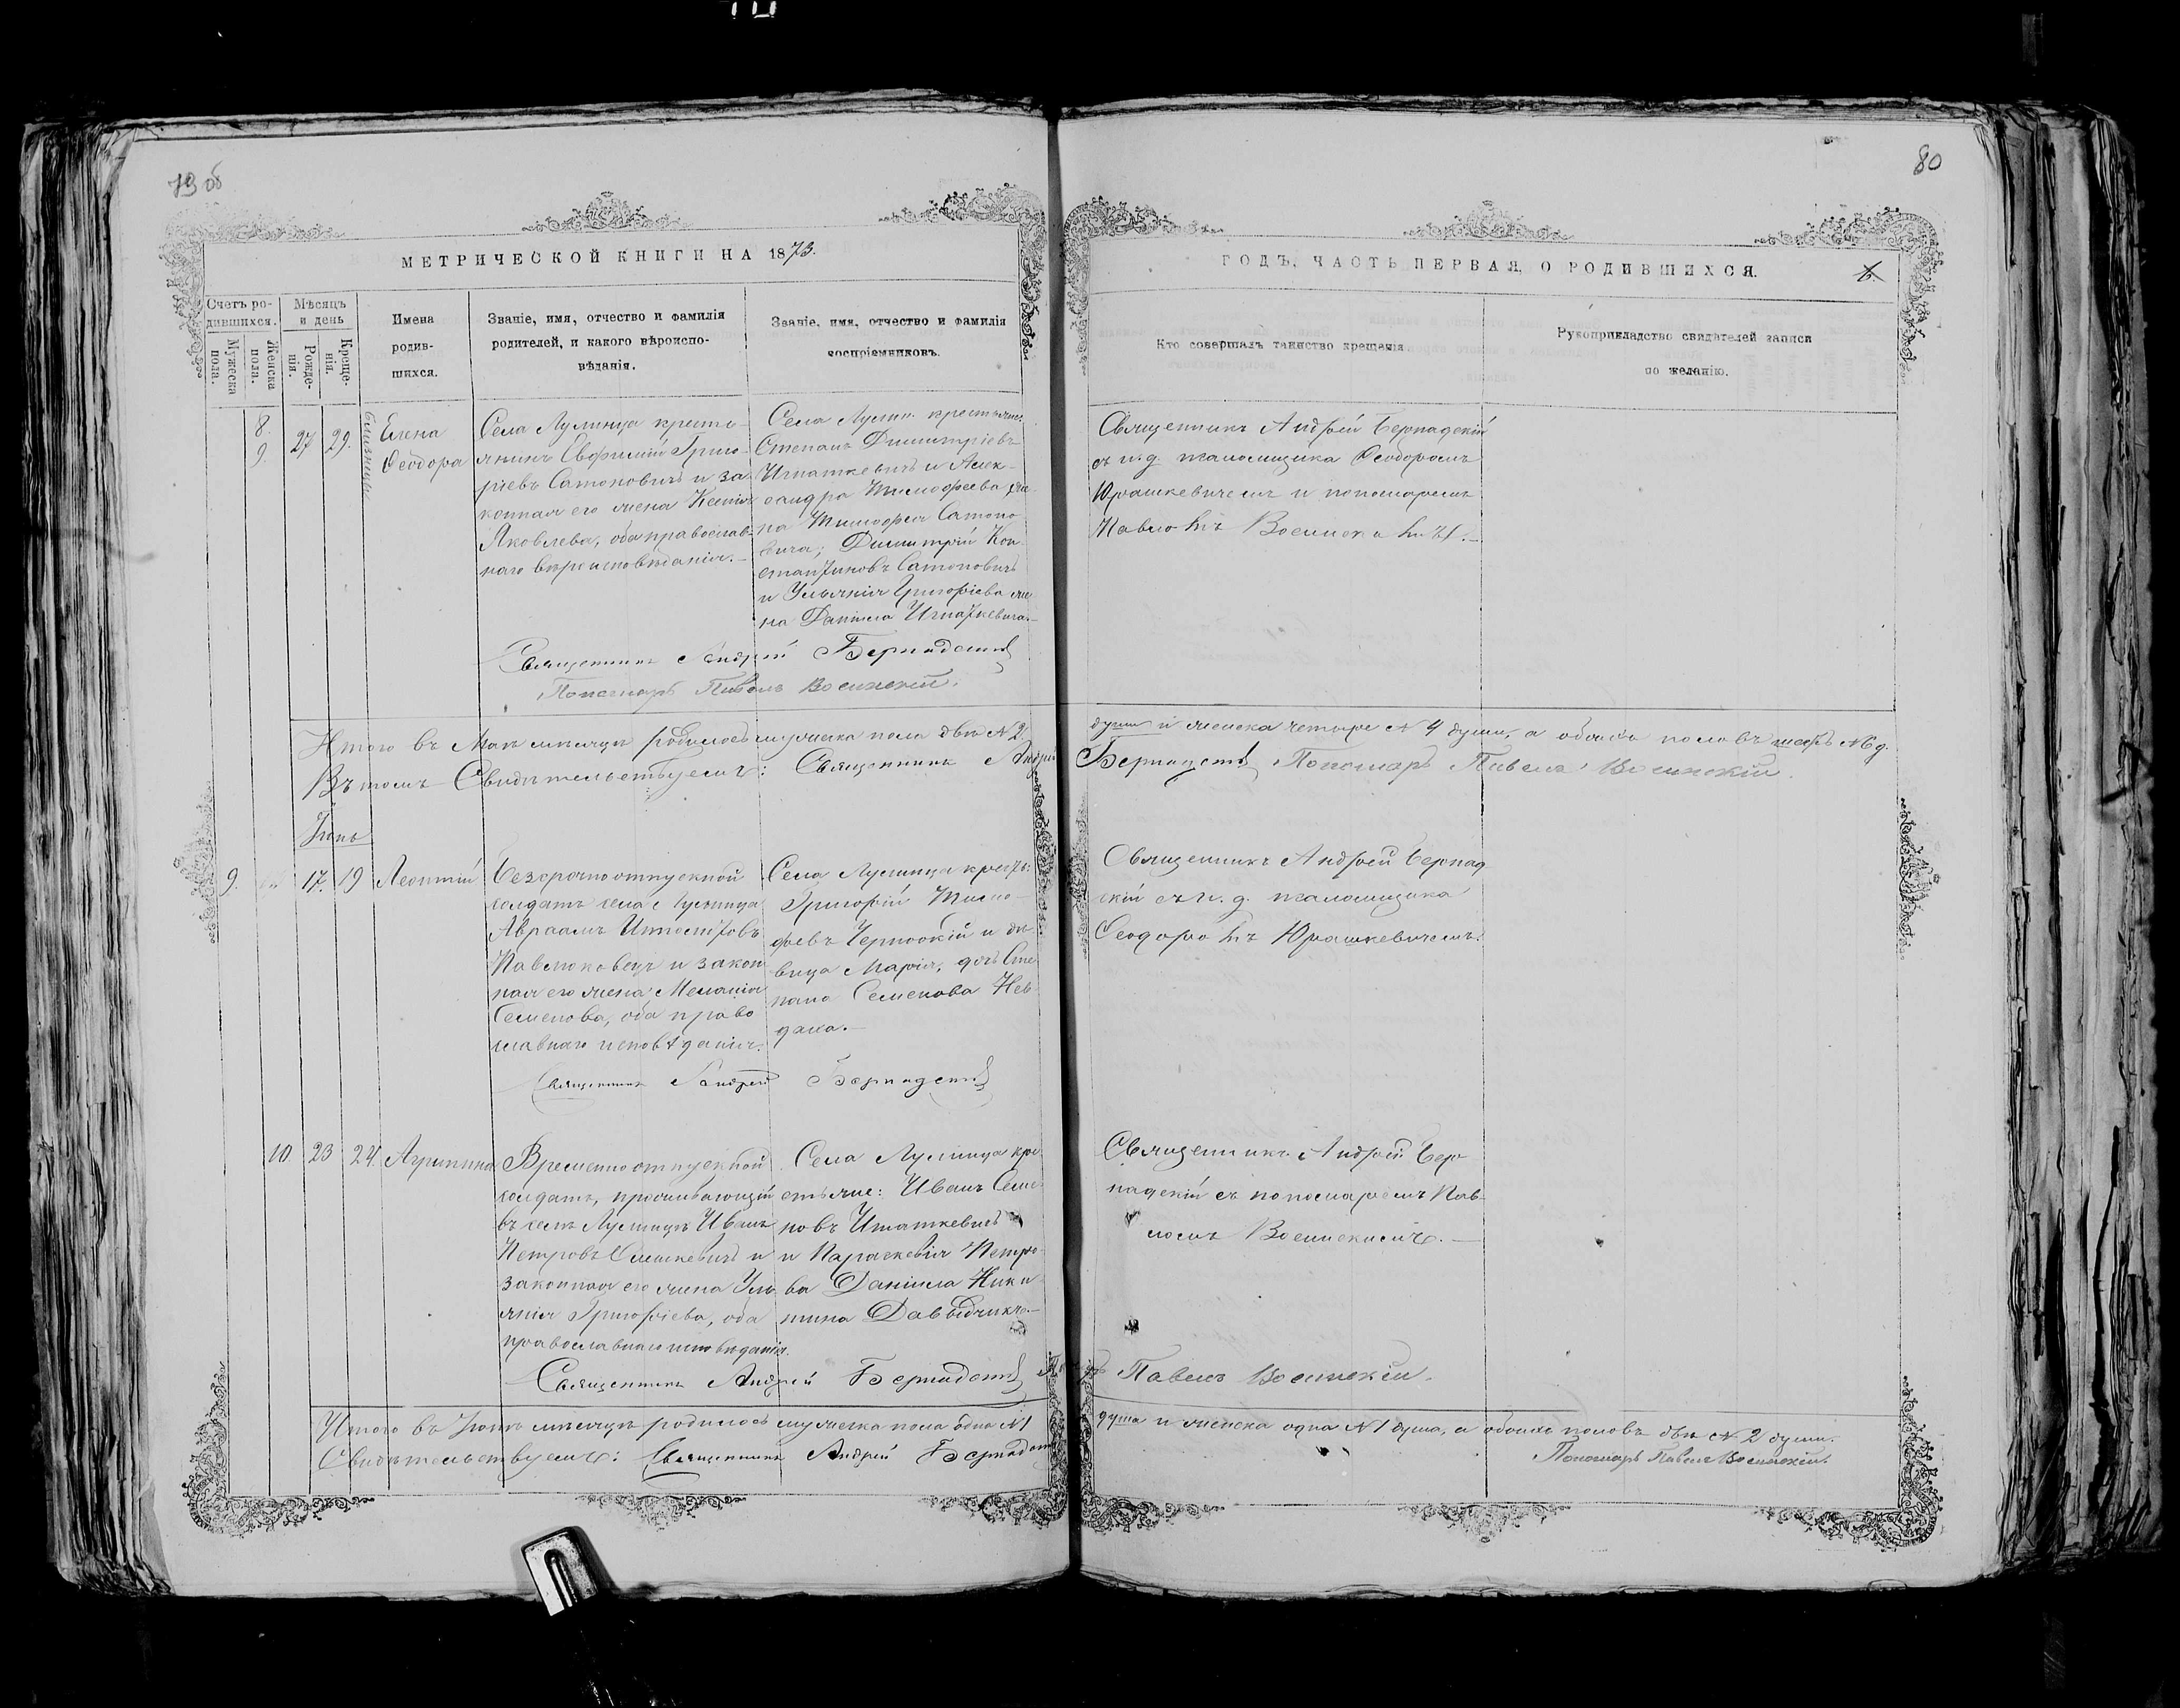 79 об
80
МЕТРИЧЕСКОЙ КНИГИ НА 1873.
ГОДЪ, ЧАСТЬ ПЕРВАЯ, О РОДИВШИХСЯ.
Счетъ родившихся.
Мужеска пола.
Женска пола.
Мѣсяцъ и день
Рожденія.
Крещенія.
Имена
родив-
шихся.
Званіе, имя, отчество и фамилія
родителей, и какого вѣроиспо-
вѣданія.
Званіе, имя, отчество и фамилія
воспріемниковъ.
Кто совершалъ таинство крещенія.
Рукоприкладство свидѣтелей записи
по желанію.
8.
9.
27
29.
близнецы
Елена
Ѳеодора
Села Лулинца кресть-
янинъ Евфимій Григо-
ріевъ Сатоновичъ и за
конная его жена Ксенія
Яковлева, оба православ-
наго вѣроисповѣданія.-
Села Лулин. крестьяне:
Степанъ Димитріевъ
Игнаткевичъ и Алек-
сандра Тимофеева же-
на Тимофея Сатоно
вича; Димитрій Кон-
стантиновъ Сатоновичъ
и Ульянія Григоріева же-
на Даніила Игнаткевича.-
Священникъ Андрей Бернадскій
съ и. д. псаломщика Ѳеодоромъ
Юрашкевичемъ и пономаремъ
Павломъ Воеинскимъ.-
Священникъ Андрей Бернадскій
Пономарь Павелъ Воеинскій.
Итого въ Маѣ мѣсяцѣ родилось мужеска пола двѣ N 2
души и женска четыре N 4 души, а обоихъ половъ шесть N 6 д.
Въ томъ Свидѣтельствуемъ: Священникъ Андрей
Бернадскій Пономарь Павелъ Воеинскій.
Іюнь
9.
17.
19
Леонтій
Безсрочноотпускной
солдатъ села Лулинца
Авраамъ
и закон
ная его жена Меланія
Семенова, оба право
славнаго исповѣданія.
Села Лулинца крест.:
Григорій Тимо-
феевъ Чернокій и дѣ-
вица Марія, дочь Сте
пана Семенова Нев
дана.-
Священникъ Андрей Бернад
скій съ и. д. псаломщика
Ѳеодоромъ Юрашкевичемъ.
Священникъ Андрей Бернадскій
10.
23
24.
Агрипина
Временноотпускной
солдатъ, проживающій
въ селѣ Лулинцѣ Иванъ
Петровъ и
законная его жена Уль
янія Григоріева, оба
православнаго исповѣданія.
Села Лулинца кре
стьяне: Иванъ Семе-
новъ Игнаткевичъ
и Параскевія Петро-
ва Даніила Ники
тина Давыдчика.-
Священникъ Андрей Бер-
надскій съ пономаремъ Пав-
ломъ Воеинскимъ.-
Священникъ Андрей Бернадскій
Павелъ Воеинскій.
Итого въ Іюнѣ мѣсяцѣ родилось мужеска пола одна N 1
душа и женска одна N 1 душа, а обоихъ половъ двѣ N 2 души.
Свидѣтельствуемъ: Священникъ Андрей Бернадскій
Пономарь Павелъ Воеинскій.